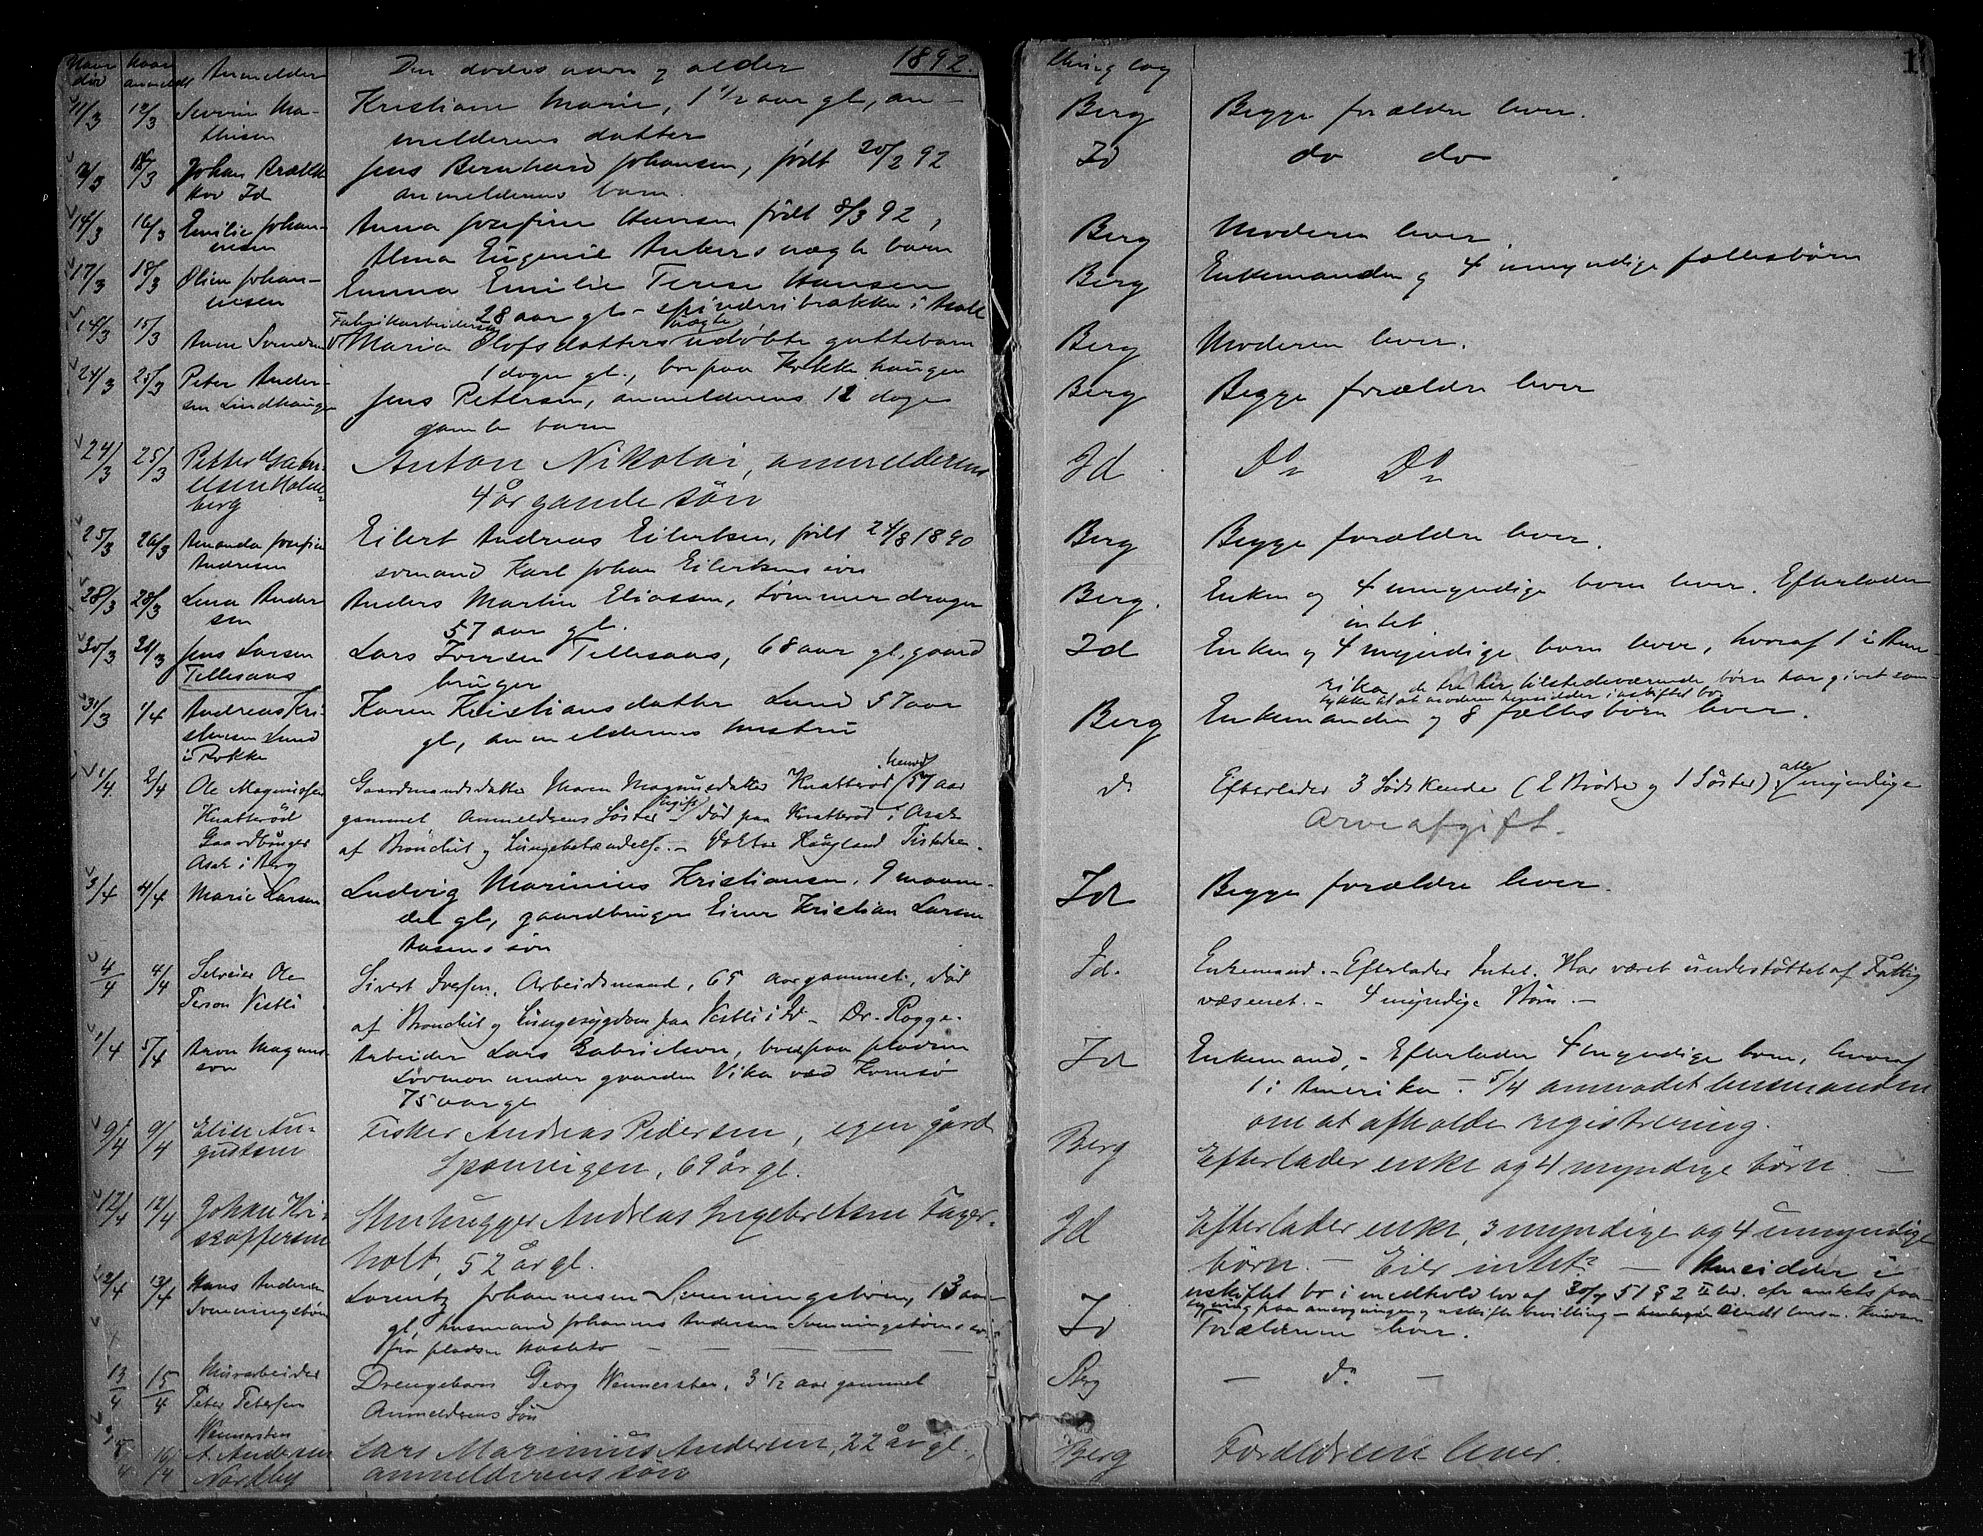 Naar død Naar anmeldt Anmelder Den dødes navn og alder 1892. Thinglag 1
11/3 12/3 Severin Ma- Kristiane Marie, 1 1/2 aar gl., an- Berg Begge forældre lever.
thisen melderens datter
Johan Brække Jens Bernhard Johansen, født 20/2 92 Id do do
Id anmelderens barn.
14/3 16/3 Emilie Johan- Anna Josefine Hansen født 8/3 92, Berg Moderen lever
nesen Alma Eugenie Ankers uægte barn
17/3 18/3 Olin Johan- Emma Emilie Terese Hansen Berg Enkemanden og 4 umyndige fællesbørn
nesen 28 aar gl - spinderibrakke i Asak
14/3 15/3 Anne Svendsen Fabrikarbeiderske Maria Olofsdatters uægte udøbte guttebarn Berg Moderen lever.
1 dogn gl., bor paa Kokkehaugen
24/3 25/3 Peter Ander- Jens Petersen, anmelderens 12 dage Berg Begge forældre lever
sen Lindhaugen gamle barn
24/3 25/3 Petter Gabri- Anton Nikolai, anmelderens Id Do Do
elsen Holm- 4 år gamle søn
berg
25/3 26/3 Amanda Josefine Eilert Andreas Eilertsen, født 24/8 1890 Berg Begge forældre lever.
Andresen sømand Karl Johan Eilertsens søn
28/3 28/3 Lena Ander- Anders Martin Eliassen, tømmerdrager Berg. Enken og 4 umyndige børn lever. Efterlader
sen 57 aar gl. intet
30/3 Jens Larsen Lars Iversen Tellesaas, 68 aar gl, gaard Id Enken og 4 myndige børn lever, hvoraf 1 i Ame-
Tellesaas bruger rika, de tre her tilstedeværende børn har givet sam-
tykke til at moderen hensidder i uskiftet bo
31/3 1/4 Andreas Kri- Karen Kristiansdatter Lund 57 aar Berg Enkemanden og 8 fællesbørn lever.
stensen Lund gl., anmelderens hustru
i Rokke
1/4 2/4 Ole Magnussen Gaardmandsdatter Maren Magnusdatter Knatterød 57 aar do Efterlader 3 Sødskende (2 Brødre og 1 Søster), alle myndige
Knatterød gammel Anmelderens Søster ugift død paa Knatterød i Asak Arveafgift.
Gaardbruger af Bronchit og Lungebetændelse. - Doktor Haugland Tistedalen.
Asak i Berg
3/4 4/4 Marie Larsen Ludvig Marinius Kristiansen, 9 maane- Id Begge forældre lever.
der gl, gaardbruger Einar Kristian Larsen
Aasens søn
4/4 4/4 Selveier Ole Sivert Ivesen, Arbeidsmand, 65 aar gammel, død Id. Enkemand. - Efterlader Intet. Har været understøttet af Fattig
Person Vestli af Bronchit og Lungesygdom paa Vestli i Id - Dr. Rogge. væsenet. - 4 myndige Børn. -
1/4 5/4 Aron Magnus- Arbeider Lars Gabrielsen, boede paa pladsen Id Enkemand, - Efterlader 4 myndige børn, hvoraf
son Løvmon under gaarden Vika ved Kornsø 1 i Amerika - 5/4 anmodet lensmanden
75 aar gl om at afholde registrering.
9/4 9/4 Elise Au- Fisker Andreas Pedersen, egen gård Berg Efterlader enke og 4 myndige børn. -
gustsen Sponvigen, 69 år gl.
12/4 12/4 Johan Kri- Stenhugger Andreas Ingebretsen Fager- Id Efterlader enke, 3 myndige og 4 umyndige
stoffersen holt, 52 år gl. børn. - Eier intet - Hensidder i
12/4 13/4 Hans Andersen Lorentz Johannesen Svenningsbøen, 13 aar uskiftet bo i medhold lov af 30/7 51 § 2
Svenningsbøen gl, husmand Johannes Andersen Svenningsbøens søn Id Forældrene lever.
fra pladsen
13/4 15/4 Murarbeider Drengebarn Georg Wennersten, 3 1/2 aar gammel Berg - do -
Peter Petersen Anmelderens Søn
Wennersten
16/4 A. Andersen Lars Marinius Andersen, 22 år gl., Berg Forældrene lever.
Nordby anmelderens søn